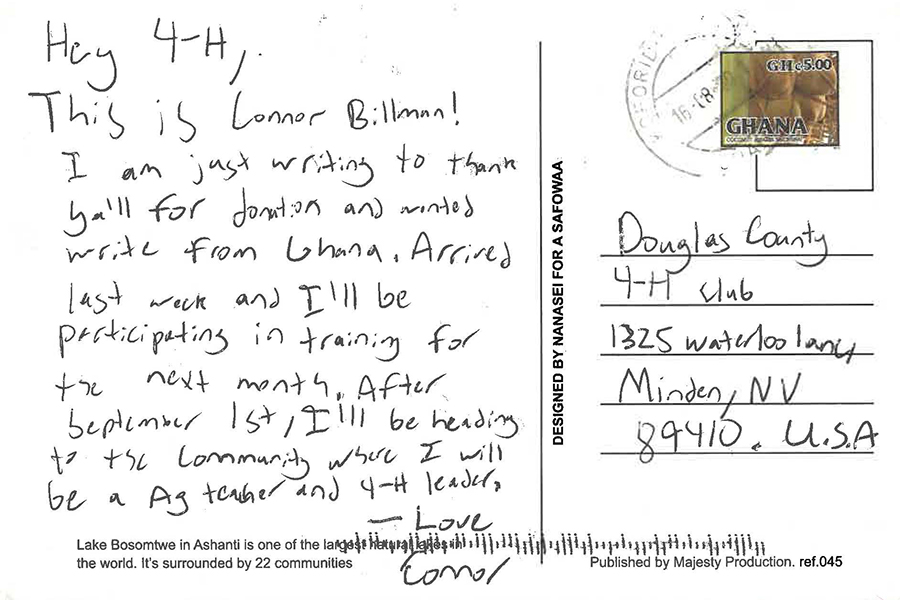 Hey 4-H,
This is Connor Billman!
I am just writing to thank
ya'll for donation and wanted
write from Ghana. Arrived
last week and I'll be
participating in training for
the next month. After
September 1st, I'll be heading
to the community where I will
be a Ag teacher and 4-H leader.
— Love
Connor
Lake Bosomtwe in Ashanti is one of the largest natural lakes in
the world. It's surrounded by 22 communities
DESIGNED BY NANASEI FOR A SAFOWAA
16-08
GH¢5.00
GHANA
Douglas County
4-H club
1325 waterloo lane
Minden, NV
89410. U.S.A
Published by Majesty Production. ref.045